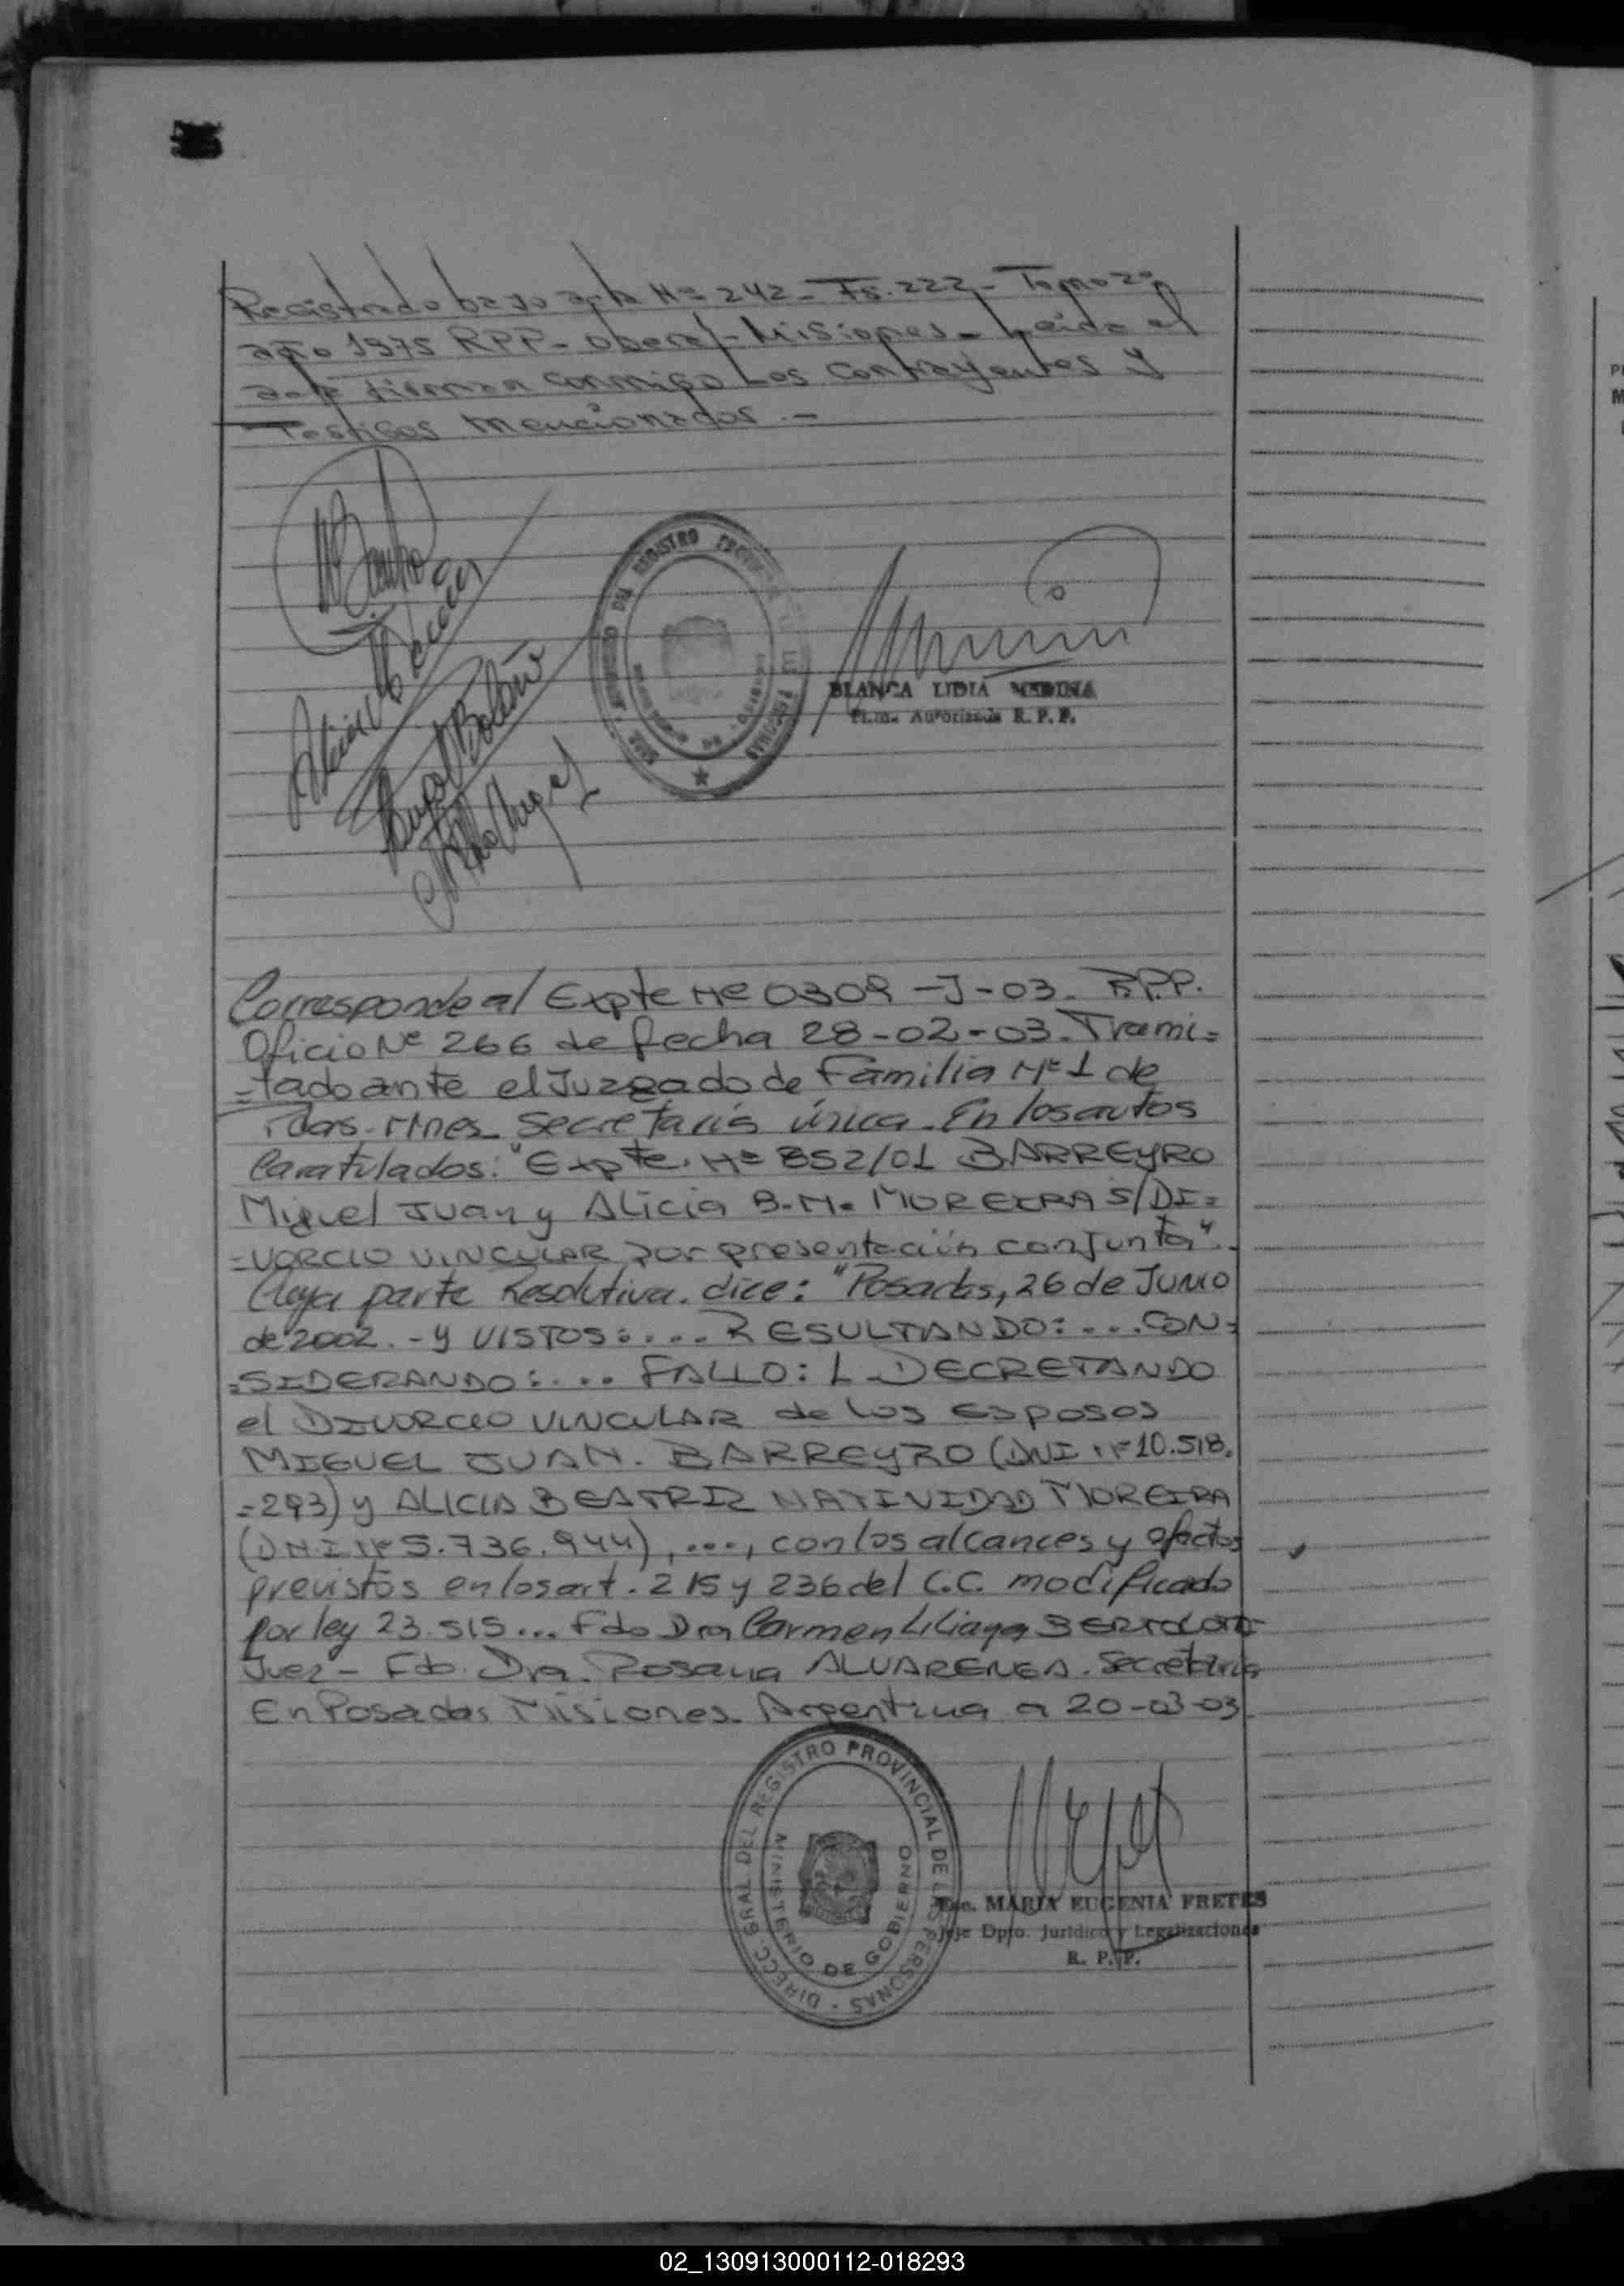 Registrado bajo acta Nº 242 - Fs. 222 - Tomo 2º
año 1975 RPP - Oberá - Misiones - Leída el
acta firman conmigo Los Contrayentes y
Testigos Mencionados.-
DEL REGISTRO
BLANCA LIDIA MEDINA
Autorizada R. P. P.
Corresponde al Expte Nº 0309 -J-03. R.P.P.
Oficio Nº 266 de fecha 28-02-03. Trami=
=tado ante el Juzgado de Familia Nº 1 de
Pdas. Mnes. Secretaría única. En los autos
Caratulados: "Expte. Nº 852/01 BARREYRO
Miguel Juan y Alicia B.N. MOREIRA S/DI=
=VORCIO VINCULAR por presentación conjunta".
Cuya parte Resolutiva. dice: "Posadas, 26 de Junio
de 2002. - y VISTOS:.... RESULTANDO:... CON=
=SIDERANDO:... FALLO: I. DECRETANDO
el DIVORCIO VINCULAR de los Esposos
MIGUEL JUAN. BARREYRO (DNI Nº 10.518.
=293) y ALICIA BEATRIZ NATIVIDAD MOREIRA
(DNI Nº 5.736.944), ...., con los alcances y efectos
previstos en los art. 215 y 236 del C.C. modificado
por ley 23.515... Fdo Dra Carmen Liliana
Juez - Fdo. Dra. Rosana ALVARENGA. Secretaria
En Posadas Misiones Argentina a 20-03-03
DIRECC. GRAL. DEL REGISTRO PROVINCIAL DE LAS PERSONAS
MINISTERIO DE GOBIERNO
Esc. MARIA EUGENIA FRETES
Jefe Dpto. Jurídico y Legalizaciones
R. P. P.
02_130913000112-018293